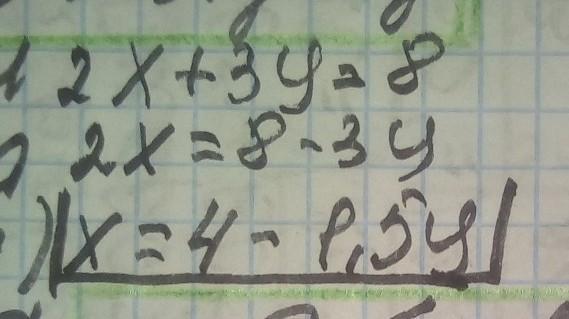 2x+3y=8
2x=8-3y
x=4-1,5y